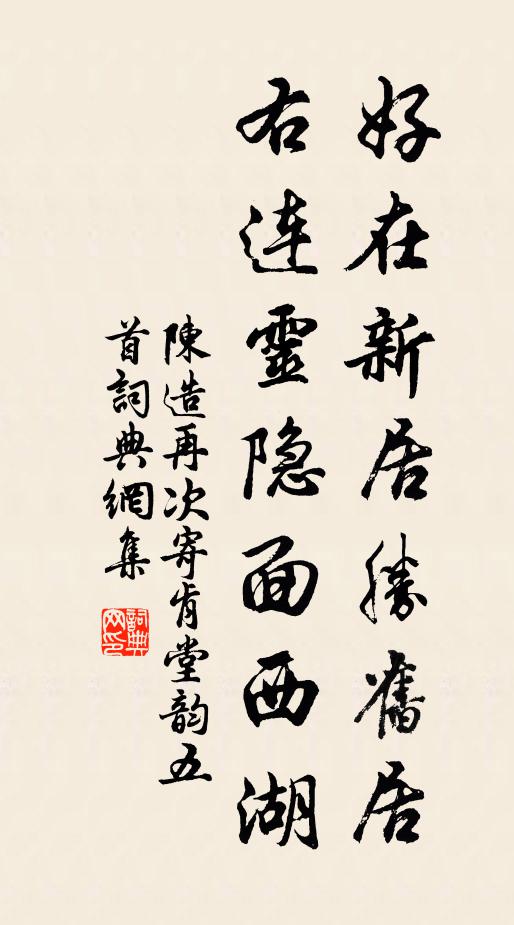 好在新居勝舊居
右連靈隐面西湖
陳造再次寄肯堂韵五
首詞典網集
詞典網印